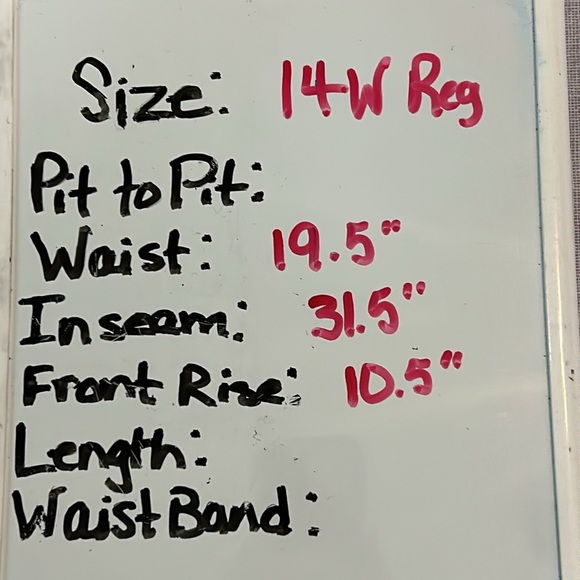 Size: 14W Reg
Pit to Pit:
Waist: 19.5"
Inseam: 31.5"
Front Rise: 10.5"
Length:
Waist Band: